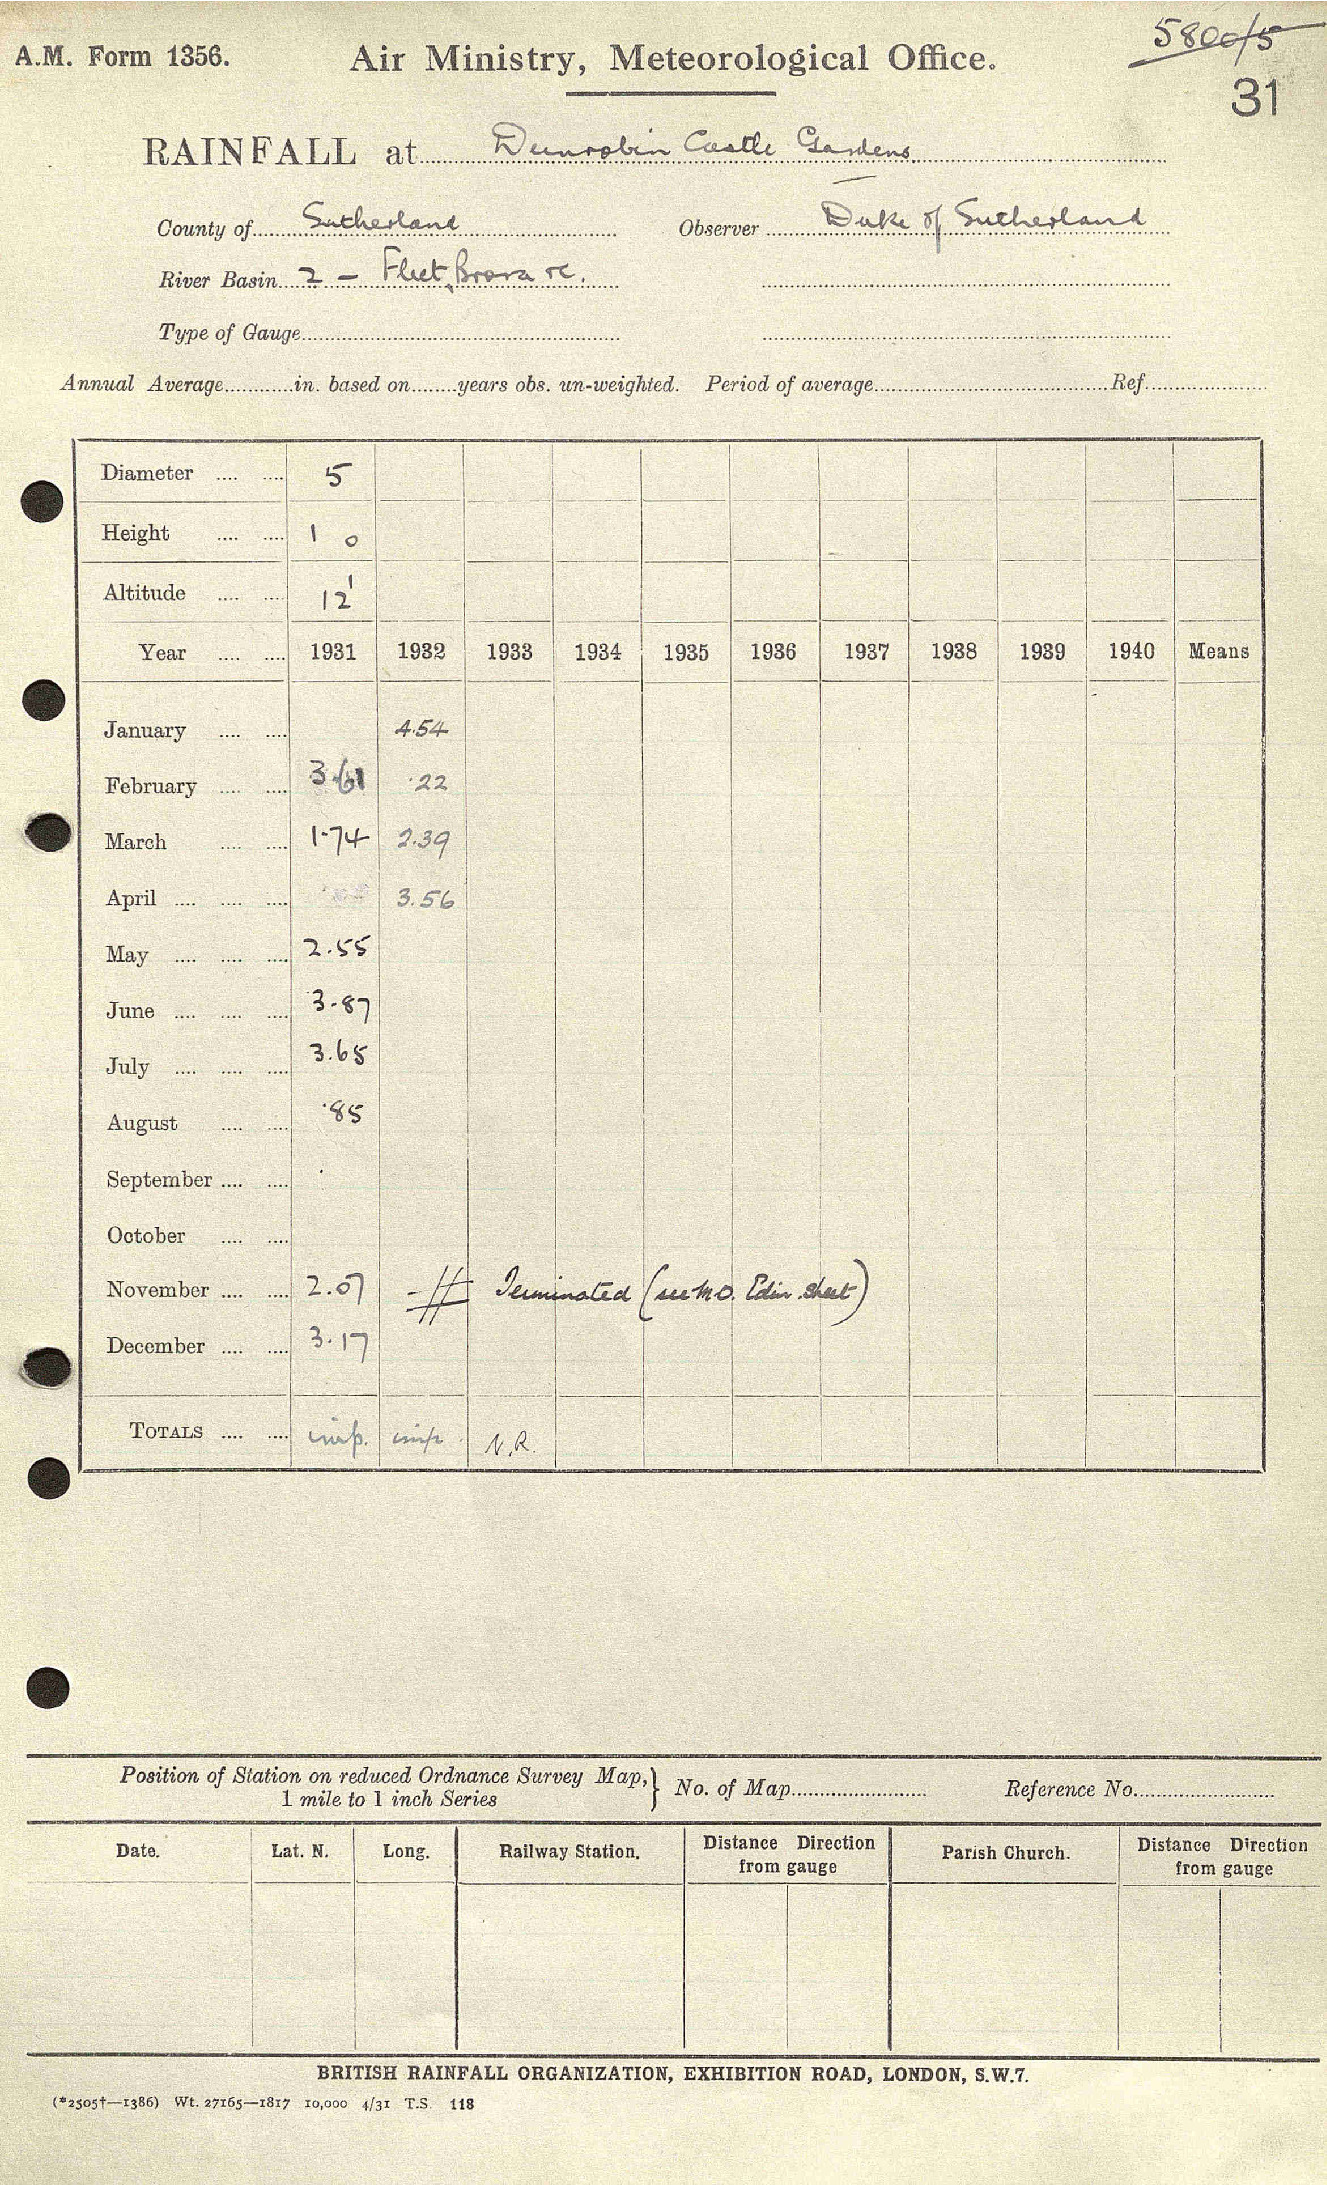 5800/5
A.M. Form 1356. Air Ministry, Meteorological Office.
31
RAINFALL at Dunrobin Castle Gardens
County of Sutherland Observer Duke of Sutherland
River Basin 2 - Fleet, Brora &c.
Type of Gauge
Annual Average in. based on years obs. un-weighted. Period of average Ref.
Diameter 5
Height 1 0
Altitude 12'
Year 1931 1932 1933 1934 1935 1936 1937 1938 1939 1940 Means
January 4.54
February 3.61 .22
March 1.74 2.39
April 3.56
May 2.55
June 3.87
July 3.65
August .85
September
October
November 2.07 Terminated (see M.O. Edin. sheet)
December 3.17
TOTALS imp. imp. N.R.
Position of Station on reduced Ordnance Survey Map, } No. of Map Reference No.
1 mile to 1 inch Series
Date. Lat. N. Long. Railway Station. Distance Direction from gauge Parish Church. Distance Direction from gauge
BRITISH RAINFALL ORGANIZATION, EXHIBITION ROAD, LONDON, S.W.7.
(*2505†—1386) Wt. 27165—1817 10,000 4/31 T.S. 118